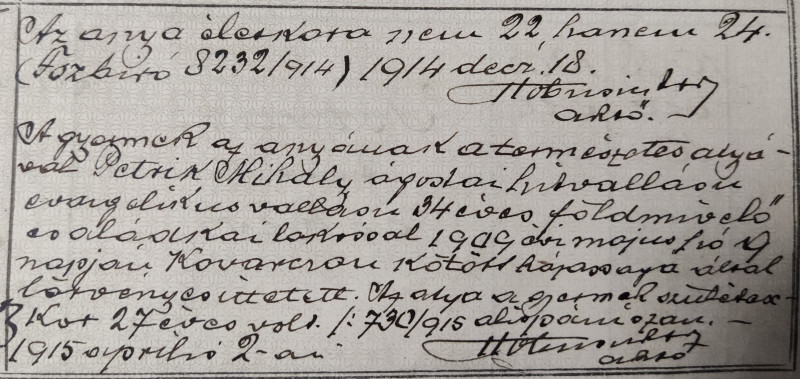 Az anya életkora nem 22, hanem 24.
(Főzbiró 8232/914) 1914 decz. 18.
akvő.
A gyermek az anyának a természetes atyá-
val Petrik Mihály ágostai hitvallású
evangelikus vallású 34 éves földmivelő
családkai lakossal 1909 évi május hó 9
napján Kovarczon kötött házassága által
törvényesíttetett. Az atya a gyermek születése-
kor 27 éves volt. /: 730/915 alispáni szám. –
1915 április 2-án
akvő